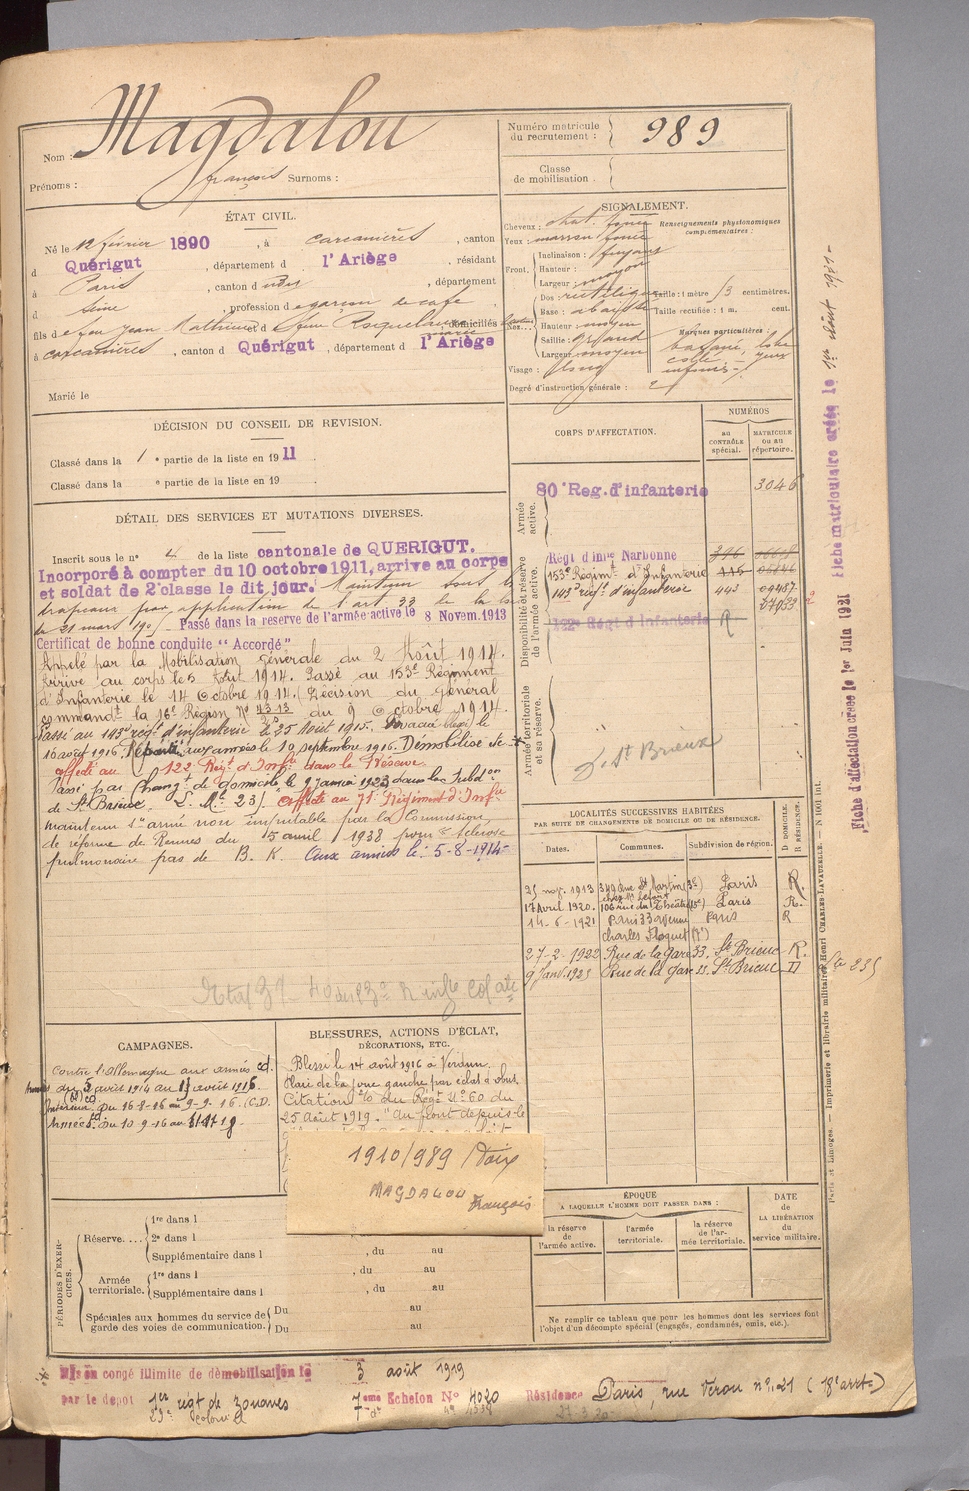 Nom : Magdalou
Prénoms : françois Surnoms :
Numéro matricule du recrutement : 989
Classe de mobilisation .
ÉTAT CIVIL.
Né le 12 février 1890 , à carcanières , canton
d Quérigut , département d l'Ariège , résidant
à Paris , canton d , département
d Seine , profession de garçon de café
fils de feu Jean et d domiciliés
à carcanières , canton d Quérigut , département d l'Ariège
Marié le
SIGNALEMENT.
Cheveux : chat. foncé
Yeux : marron foncé
Front, Inclinaison : fuyant
Hauteur : moyen
Largeur : moyen
Nez... Dos : rectiligne
Base : abaissée
Hauteur : moyen
Saillie : grand
Largeur : moyen
Visage : long
Renseignements physionomiques complémentaires :
Taille : 1 mètre centimètres.
Taille rectifiée : 1 m. cent.
Marques particulières :
Degré d'instruction générale : 2
DÉCISION DU CONSEIL DE REVISION.
Classé dans la 1 e partie de la liste en 19 11 .
Classé dans la e partie de la liste en 19 .
DÉTAIL DES SERVICES ET MUTATIONS DIVERSES.
Inscrit sous le n° 4 de la liste cantonale de QUERIGUT.
Incorporé à compter du 10 octobre 1911, arrivé au corps
et soldat de 2e classe le dit jour. Maintenu sous les
drapeaux par application de l'art 33 de la loi
du 21 mars 1905 Passé dans la réserve de l'armée active le 8 Novem. 1913
Certificat de bonne conduite "Accordé"
Appelé par la Mobilisation générale du 2 Août 1914.
Arrivé au corps le 5 Août 1914. Passé au 153e Régiment
d'Infanterie le 14 Octobre 1914. (Décision du général
commandt la 16e Région N° du 9 Octobre 1914.
Passé au 143e régt d'infanterie le 25 Août 1915. Evacué le
16 août 1916. Reparti aux armées le 10 septembre 1916. Démobilisé
affecté au 122 Régt d'Infie dans la Réserve.
Passé par changt de domicile le 9 janvier 1923 dans la subdon
de St Brieuc. affecté au 71e Régiment d'Infie
maintenu sr armé non imputable par la Commission
de réforme de Rennes du 15 avril 1938 pour sclérose
pulmonaire pas de B. K. Aux armées le : 5-8-1914
CORPS D'AFFECTATION.
NUMÉROS
au CONTRÔLE spécial.
MATRICULE ou au répertoire.
Armée active.
80e Reg. d'infanterie 3046
Disponibilité et réserve de l'armée active.
Régt d'infie Narbonne
153e Régimt d'Infanterie
143e régt d'infanterie
122e Régt d'Infanterie R
Armée territoriale et sa réserve.
St Brieux
LOCALITÉS SUCCESSIVES HABITÉES
PAR SUITE DE CHANGEMENTS DE DOMICILE OU DE RÉSIDENCE.
Dates. Communes. Subdivision de région. D DOMICILE. R RÉSIDENCE.
25 nov. 1913 349 Rue St Martin (3e) Paris R.
17 Avril 1920. 106 rue du Théâtre (15e) Paris R.
14-6-1921 Paris 33 Avenue Paris R
Charles Floquet (7e)
27-2-1922 Rue de la gare 53. St Brieuc R.
9 Janv. 1923 Rue de la gare St Brieuc D
CAMPAGNES.
Contre l'Allemagne aux armées
du 5 août 1914 au 15 août 1916
Intérieur du 16-8-16 au 9-9-16. (C.D.
Armées du 10-9-16 au
BLESSURES, ACTIONS D'ÉCLAT, DÉCORATIONS, ETC.
Blessé le 14 août 1916 à Verdun.
Plaie de la joue gauche par éclat d'obus.
Citation à l'o/ du Régt N° 60 du
25 Août 1919. "au front depuis le
1910/989 Foix
MAGDALOU
François
PÉRIODES D'EXERCICES.
Réserve.... 1re dans l
2e dans l
Supplémentaire dans l , du au
Armée territoriale. 1re dans l , du au
Supplémentaire dans l , du au
Spéciales aux hommes du service de garde des voies de communication. Du au
Du au
ÉPOQUE
A LAQUELLE L'HOMME DOIT PASSER DANS :
la réserve de l'armée active.
l'armée territoriale.
la réserve de l'armée territoriale.
DATE de LA LIBÉRATION du service militaire.
Ne remplir ce tableau que pour les hommes dont les services font
l'objet d'un décompte spécial (engagés, condamnés, omis, etc.).
Mis en congé illimité de démobilisation le 3 août 1919
par le dépôt 1er régt de zouaves 7eme Echelon N° 4020 Résidence Paris, rue Véron n° 21 (18e arrt)
Fiche d'affectation créée le 1er Juin 1921 Fiche matriculaire créée le 1er Août 1921
Paris et Limoges. — Imprimerie et librairie militaires Henri CHARLES-LAVAUZELLE.